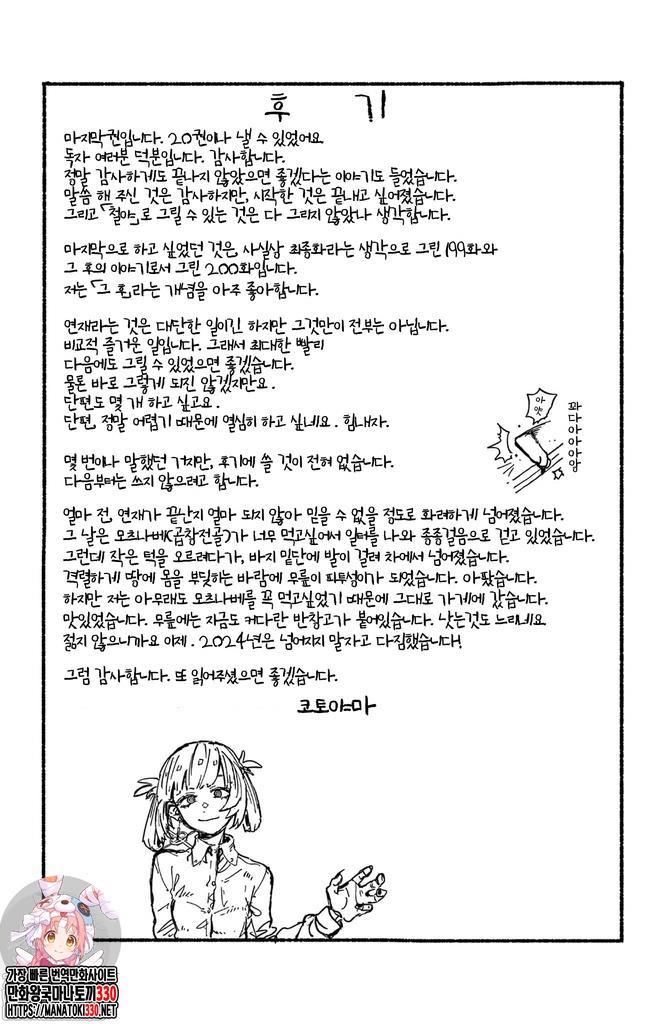 후기
마지막권입니다. 20권이나 낼 수 있었어요
독자 여러분 덕분입니다. 감사합니다.
정말 감사하게도 끝나지 않았으면 좋겠다는 이야기도 들었습니다.
말씀 해 주신 것은 감사하지만, 시작한 것은 끝내고 싶어졌습니다.
그리고 「철야」로 그릴 수 있는 것은 다 그리지 않았나 생각합니다.
마지막으로 하고 싶었던 것은, 사실상 최종화라는 생각으로 그린 199화와
그 후의 이야기로서 그린 200화입니다.
저는 「그 후」라는 개념을 아주 좋아합니다.
연재라는 것은 대단한 일이긴 하지만 그것만이 전부는 아닙니다.
비교적 즐거운 일입니다. 그래서 최대한 빨리
다음에도 그릴 수 있었으면 좋겠습니다.
물론 바로 그렇게 되진 않겠지만요.
단편도 몇 개 하고 싶고요.
단편, 정말 어렵기 때문에 열심히 하고 싶네요. 힘내자.
아얏
꽈다아아아앙
몇 번이나 말했던 거지만, 후기에 쓸 것이 전혀 없습니다.
다음부터는 쓰지 않으려고 합니다.
얼마 전, 연재가 끝난지 얼마 되지 않아 믿을 수 없을 정도로 화려하게 넘어졌습니다.
그 날은 모츠나베(곱창전골)가 너무 먹고싶어서 일터를 나와 종종걸음으로 걷고 있었습니다.
그런데 작은 턱을 오르려다가, 바지 밑단에 발이 걸려 차에서 넘어졌습니다.
격렬하게 땅에 몸을 부딪히는 바람에 무릎이 피투성이가 되었습니다. 아팠습니다.
하지만 저는 아무래도 모츠나베를 꼭 먹고싶었기 때문에 그대로 가게에 갔습니다.
맛있었습니다. 무릎에는 지금도 커다란 반창고가 붙어있습니다. 낫는것도 느리네요
젊지 않으니까요 이제. 2024년은 넘어지지 말자고 다짐했습니다!
그럼 감사합니다. 또 읽어주셨으면 좋겠습니다.
코토야마
가장 빠른 번역만화사이트
만화왕국마나토끼330
HTTPS://MANATOKI330.NET